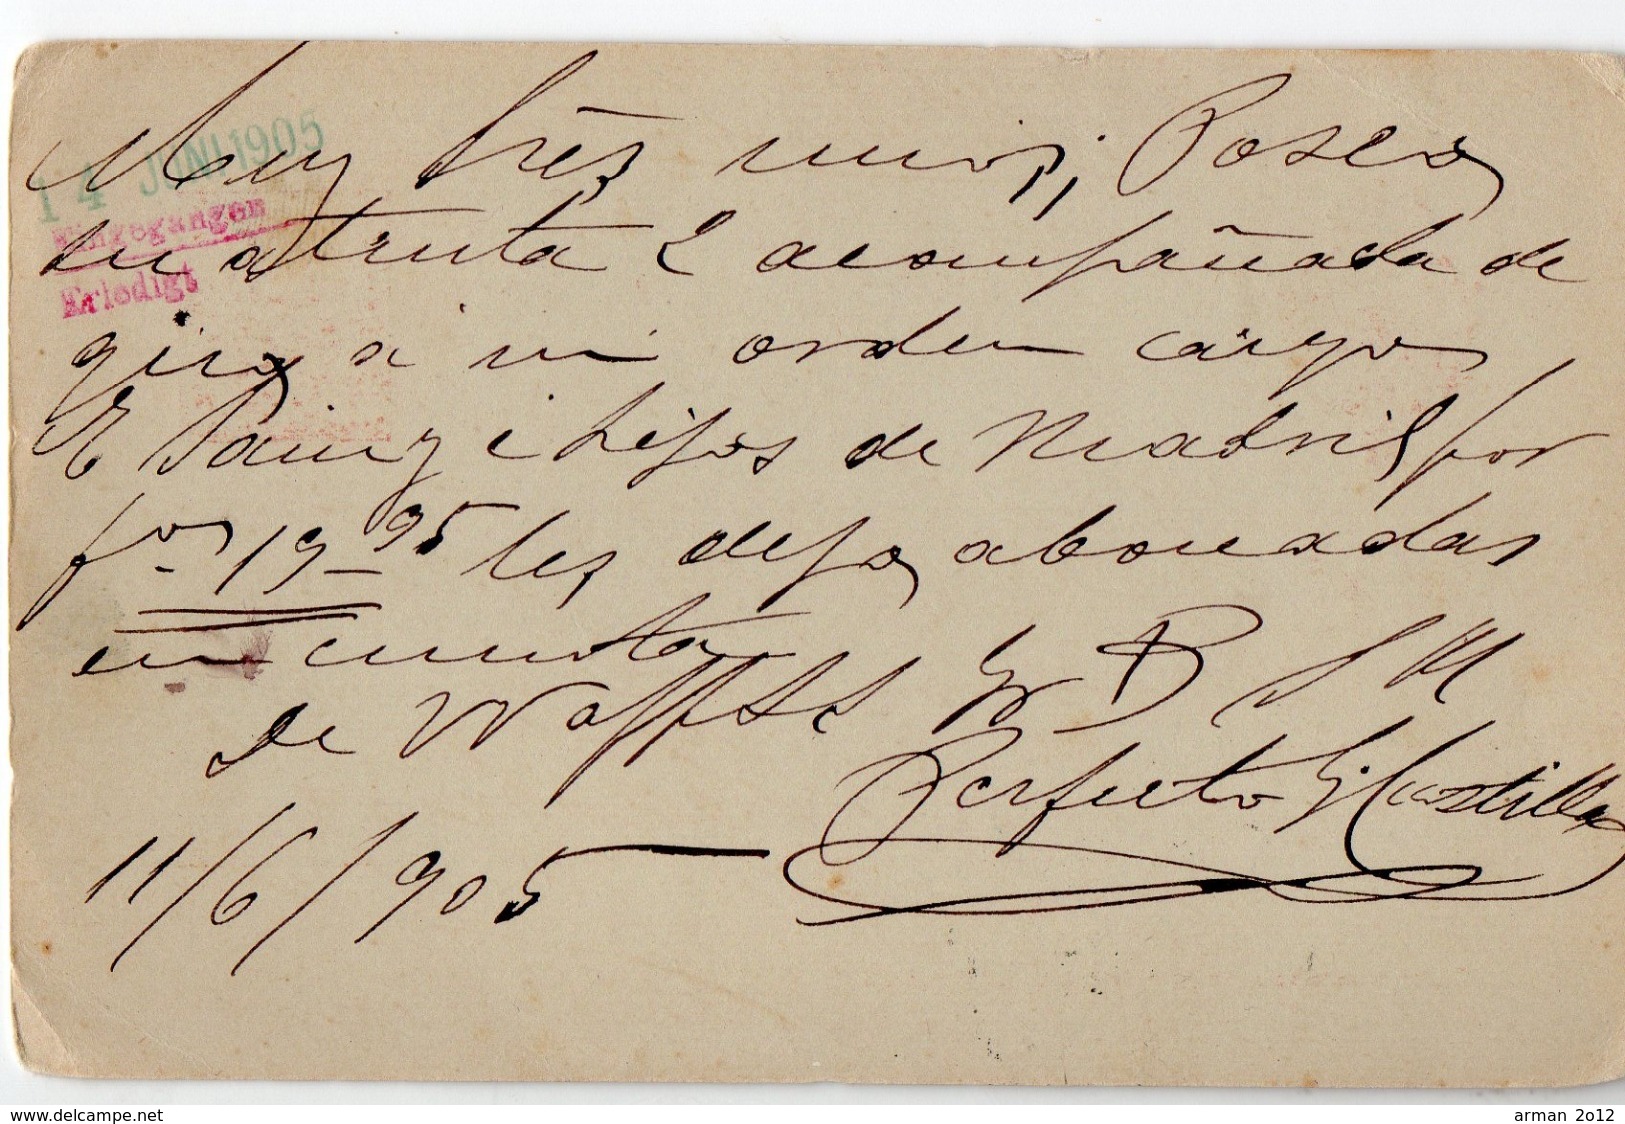 14 JUNI 1905
Eingegangen
Erledigt
Muy Sres mios; Poseo
su atenta 2 acompañada de
giro a mi orden cargo
E Sainz e hijos de Madrid por
fcos 19-95 les dejo abonadas
en cuenta
De Vd affss S q B S M
Perfecto G. Castilla
11/6/905
www.delcampe.net
arman 2012